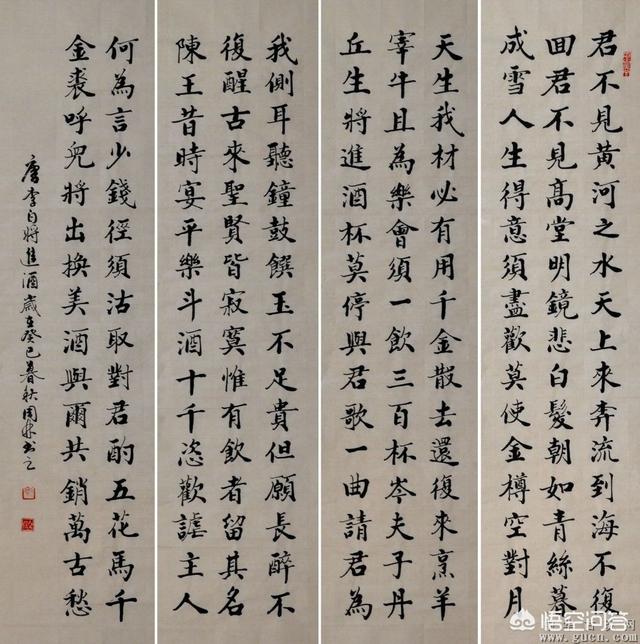 君不見黃河之水天上來奔流到海不復
囬君不見高堂明鏡悲白髮朝如青絲暮
成雪人生得意須盡歡莫使金樽空對月
天生我材必有用千金散去還復來烹羊
宰牛且為樂會須一飲三百杯岑夫子丹
丘生將進酒杯莫停與君歌一曲請君為
我側耳聽鐘鼓饌玉不足貴但願長醉不
復醒古來聖賢皆寂寞惟有飲者留其名
陳王昔時宴平樂斗酒十千恣歡謔主人
何為言少錢徑須沽取對君酌五花馬千
金裘呼兒將出換美酒與爾共銷萬古愁
唐李白將進酒歲在癸巳暮秋書之
悟空问答
www.gucn.com